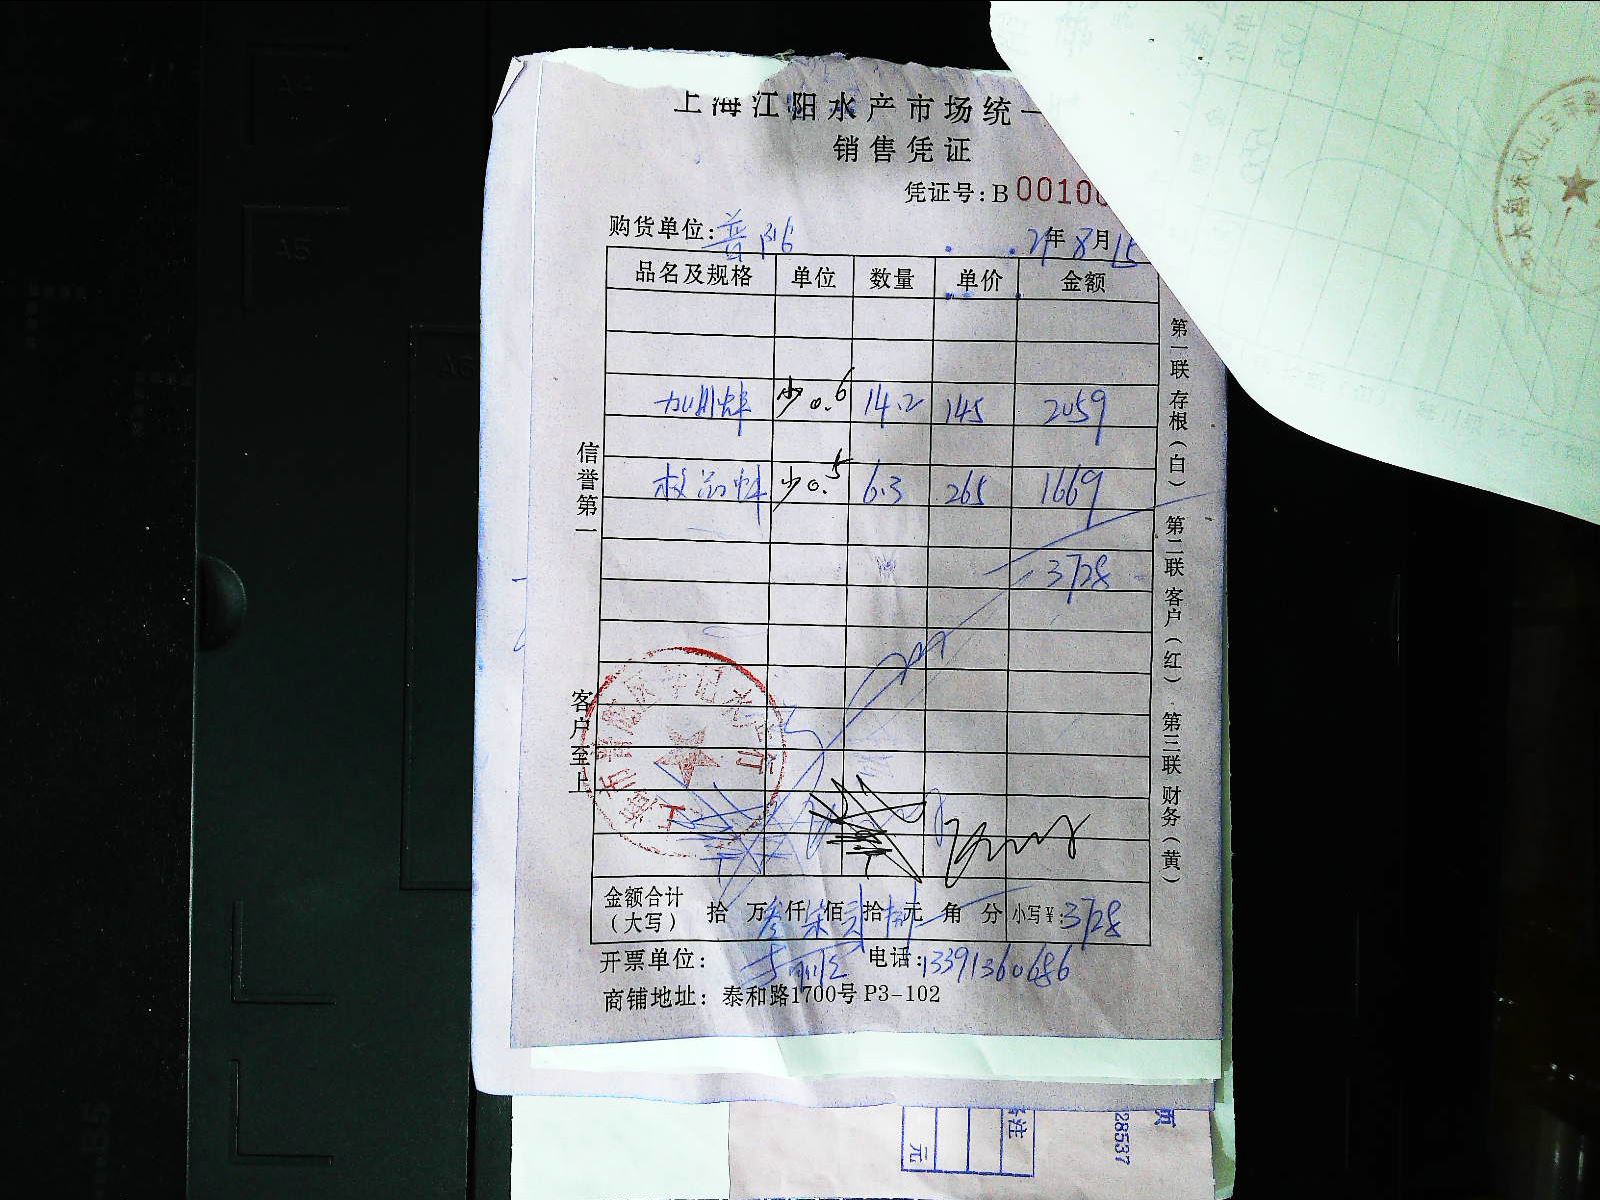 上海江阳水产市场统一
销售凭证
凭证号：B 00100
购货单位：普陀 21年8月15
品名及规格 单位 数量 单价 金额
加州蚌 少0.6 14.2 145 2059
蚌 少0.5 6.3 265 1669
3728
信誉第一
客户至上
第一联 存根（白） 第二联 客户（红） 第三联 财务（黄）
金额合计（大写） 拾 万 叁仟 柒佰 贰拾 捌元 角 分 小写¥：3728
开票单位： 电话：13391360686
商铺地址：泰和路1700号 P3-102
备注
元
28537
页